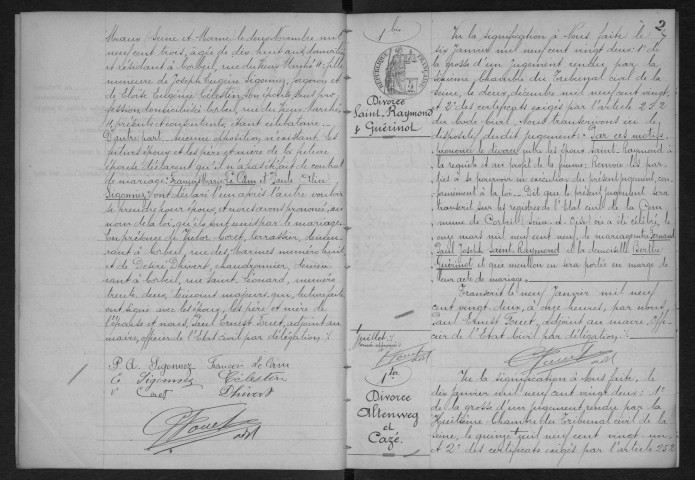 Meaux Seine et Marne le douze Novembre mil
neuf cent trois, âgée de dix huit ans, domiciliée
et résidant à Corbeil, rue du Vieux Marché, fille
mineure de Joseph Eugène Sigonnez, forgeron et
de Eloïse Eugénie Célestin, son épouse, sans pro-
fession, domiciliés à Corbeil, rue du Vieux Marché
présents et consentants, étant célibataire.
D'autre part. Aucune opposition n'existant, les
futurs époux et les père et mère de la future
épouse déclarent qu'il n'a pas été fait de contrat
de mariage. François Marie Le Cam et Paule Alice
Sigonnez, ont déclaré l'un après l'autre vouloir
se prendre pour époux, et nous avons prononcé, au
nom de la loi, qu'ils sont unis par le mariage.
En présence de Victor Coret, terrassier, demeu-
rant à Corbeil, rue des Marines numéro huit
et de Désiré Phivert, chaudronnier, demeu-
rant à Corbeil, rue Saint Léonard, numéro
trente deux, témoins majeurs qui, lecture faite
ont signé avec les époux, les père et mère de
l'épouse et nous, Paul Ernest Touet, adjoint au
maire, officier de l'Etat civil par délégation.
P. A. Sigonnez François Le Cam
E Sigonnez Célestin
V Coret Phivert
Touet adjt
1 bis
REPUBLIQUE FRANÇAISE
Divorce
Saint-Raymond
& Guérinot
Guillot
Touet adjt
1 ter
Divorce
Altenweg
et
Cazé.
2
Vu la signification à Nous faite le
six Janvier mil neuf cent vingt deux 1° de
la grosse d'un jugement rendu par la
Chambre du Tribunal civil de la
Seine, le deux décembre mil neuf cent vingt,
et 2° des certificats exigés par l'article 252
du Code Civil. Nous transcrivons ici le
dispositif dudit jugement: Par ces motifs
Prononce le divorce entre les époux Saint-Raymond à
la requête et au profit de la femme; Renvoie les par-
ties à se pourvoir en exécution du présent jugement, con-
formément à la loi. Dit que le présent jugement sera
transcrit sur les registres de l'Etat civil de la Com-
mune de Corbeil (Seine et Oise) où a été célébré, le
onze mars mil neuf cent neuf, le mariage entre Fernand
Paul Joseph Saint-Raymond et la demoiselle Berthe
Guérinot et que mention en sera portée en marge de
leur acte de mariage.
Transcrit le neuf Janvier mil neuf
cent vingt deux, à onze heures, par nous,
Paul Ernest Touet, adjoint au maire, Offi-
cier de l'Etat Civil par délégation.
Touet adjt
Vu la signification à Nous faite, le
dix Janvier mil neuf cent vingt deux: 1°
de la grosse d'un jugement rendu par la
Huitième Chambre du Tribunal civil de la
Seine, le quinze mil neuf cent vingt un
et 2° des certificats exigés par l'article 252